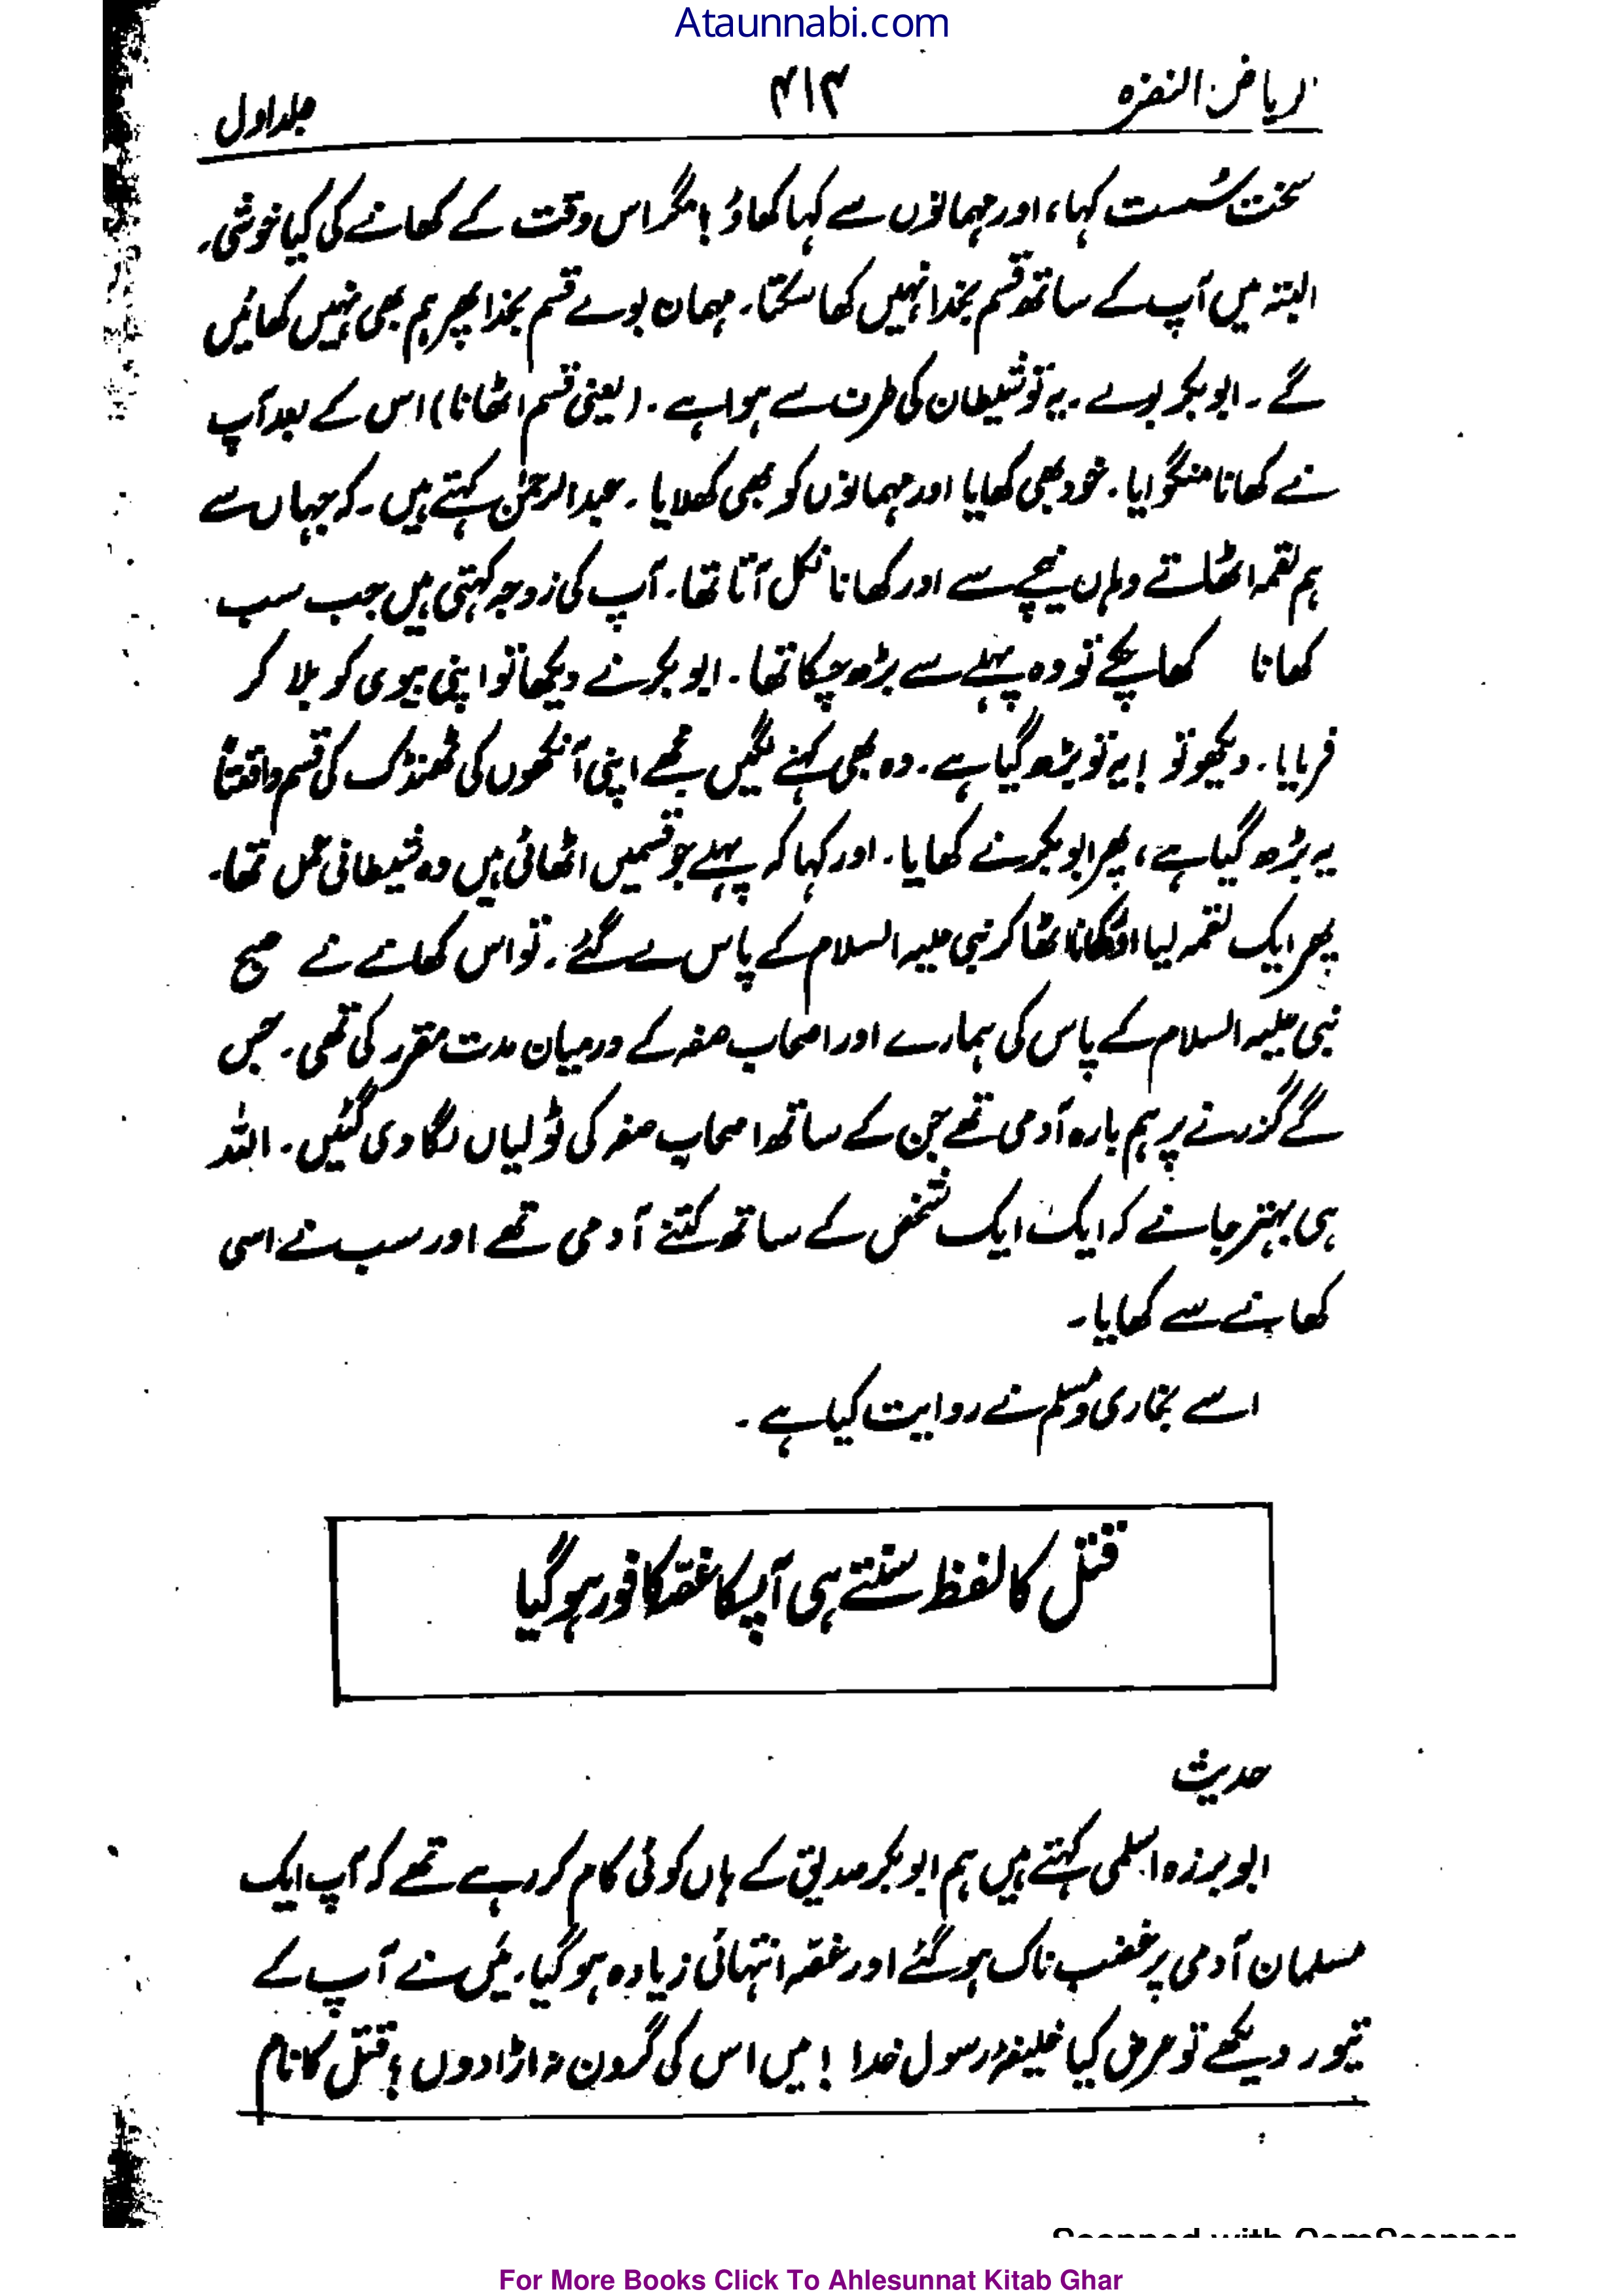 Ataunnabi.com
ریاض النضرہ ۴۱۳ جلد اول
سخت سُست کہا، اور مہمانوں سے کہا کھاؤ! مگر اس وقت کے کھانے کی کیا خوشی۔
البتہ میں آپ کے ساتھ قسم بخدا نہیں کھا سکتا۔ مہمان بولے قسم بخدا پھر ہم بھی نہیں کھائیں
گے۔ ابو بکر بولے۔ یہ تو شیطان کی طرف سے ہوا ہے۔ (یعنی قسم اٹھانا) اس کے بعد آپ
نے کھانا منگوایا۔ خود بھی کھایا اور مہمانوں کو بھی کھلایا۔ عبدالرحمٰن کہتے ہیں۔ کہ جہاں سے
ہم لقمہ اٹھاتے وہاں نیچے سے اور کھانا نکل آتا تھا۔ آپ کی زوجہ کہتی ہیں جب سب
کھانا کھا چکے تو وہ پہلے سے بڑھ چکا تھا۔ ابو بکر نے دیکھا تو اپنی بیوی کو بلا کر
فرمایا۔ دیکھو تو! یہ تو بڑھ گیا ہے۔ وہ بھی کہنے لگیں مجھے اپنی آنکھوں کی ٹھنڈک کی قسم واقعتاً
یہ بڑھ گیا ہے، پھر ابو بکر نے کھایا۔ اور کہا کہ پہلے جو قسمیں اٹھائی ہیں وہ شیطانی عمل تھا۔
پھر ایک لقمہ لیا اور کھانا اٹھا کر نبی علیہ السلام کے پاس لے گئے۔ تو اس کھانے نے صبح
نبی علیہ السلام کے پاس کی ہمارے اور اصحاب صفہ کے درمیان مدت مقرر کی تھی۔ جس
کے گزرنے پر ہم بارہ آدمی تھے جن کے ساتھ اصحاب صفہ کی ٹولیاں لگا دی گئیں۔ اللہ
ہی بہتر جانے کہ ایک ایک شخص کے ساتھ کتنے آدمی تھے اور سب نے اسی
کھانے سے کھایا۔
اسے بخاری و مسلم نے روایت کیا ہے۔
قتل کا لفظ سنتے ہی آپ کا غصہ کافور ہو گیا
حدیث
ابو برزہ اسلمی کہتے ہیں ہم ابو بکر صدیق کے ہاں کوئی کام کر رہے تھے کہ آپ ایک
مسلمان آدمی پر غضب ناک ہو گئے اور غصہ انتہائی زیادہ ہو گیا۔ میں نے آپ کے
تیور دیکھے تو عرض کیا خلیفۂ رسول خدا! میں اس کی گردن نہ اڑا دوں؟ قتل کا نام
For More Books Click To Ahlesunnat Kitab Ghar